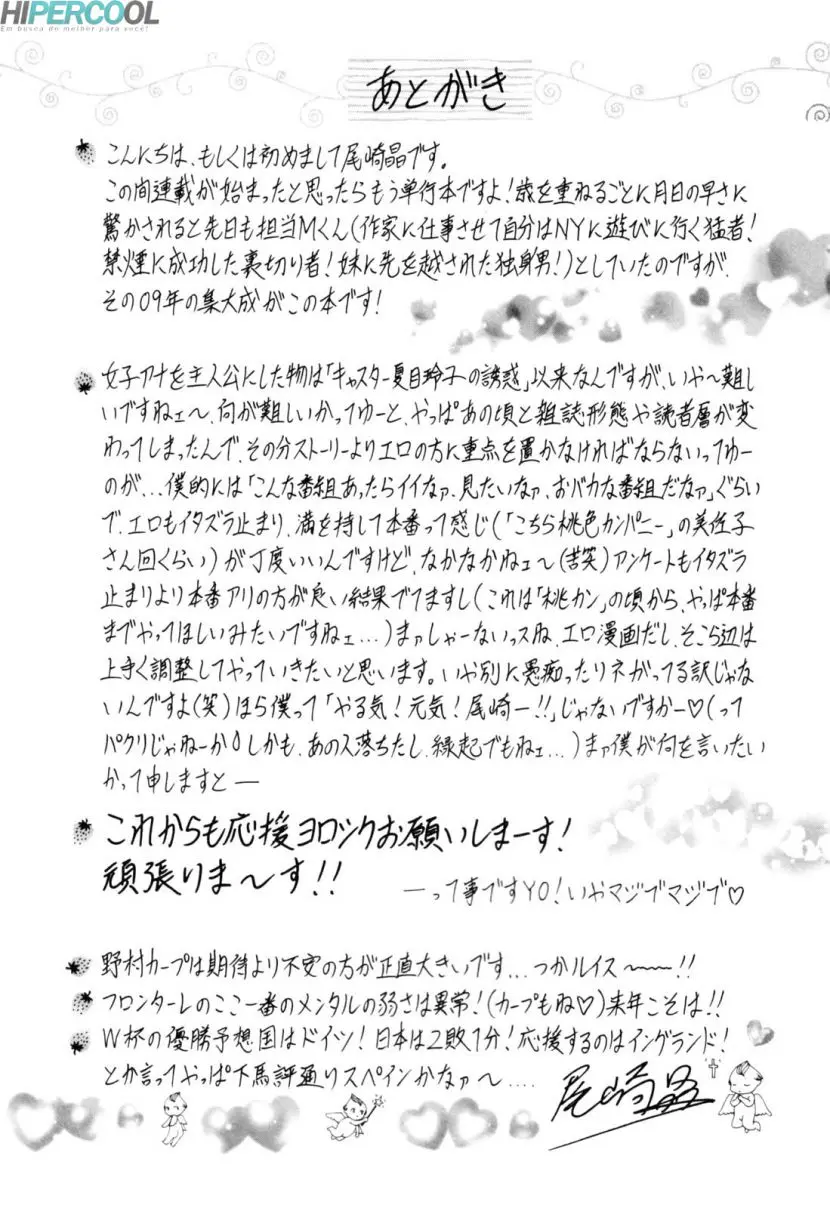 HIPERCOOL
Em busca do melhor para você!
あとがき
こんにちは、もしくは初めまして尾崎晶です。
この間連載が始まったと思ったらもう単行本ですよ!歳を重ねるごとに月日の早さに
驚かされると先日も担当Mくん(作家に仕事させて自分はNYに遊びに行く猛者!
禁煙に成功した裏切り者!妹に先を越された独身男!)としていたのですが、
その09年の集大成がこの本です!
女子アナを主人公にした物は「キャスター夏目玲子の誘惑」以来なんですが、いや〜難し
いですねェ〜、何が難しいかってゆーと、やっぱあの頃と雑誌形態や読者層が変
わってしまったんで、その分ストーリーよりエロの方に重点を置かなければならないってゆー
のが、...僕的には「こんな番組あったらイイなァ、見たいなァ、おバカな番組だなァ」ぐらい
で、エロもイタズラ止まり、満を持して本番って感じ(「こちら桃色カンパニー」の美佐子
さん回くらい)が丁度いいんですけど、なかなかねェ〜(苦笑)アンケートもイタズラ
止まりより本番アリの方が良い結果でてますし(これは「桃カン」の頃から、やっぱ本番
までやってほしいみたいですねェ...)まァしゃーないっスね、エロ漫画だし、そこら辺は
上手く調整してやっていきたいと思います。いや別に愚痴ったりネガってる訳じゃな
いんですよ(笑)ほら僕って「やる気!元気!尾崎ー!!」じゃないですかー♡(って
パクリじゃねーか しかも、あの人落ちたし、縁起でもねェ...)まァ僕が何を言いたい
かって申しますと—
これからも応援ヨロシクお願いしまーす!
頑張りま〜す!!
—って事ですYO!いやマジでマジで♡
野村カープは期待より不安の方が正直大きいです...つかルイス〜〜!!
フロンターレのここ一番のメンタルの弱さは異常!(カープもね♡)来年こそは!!
W杯の優勝予想国はドイツ!日本は2敗1分!応援するのはイングランド!
とか言ってやっぱ下馬評通りスペインかなァ〜....
尾崎晶